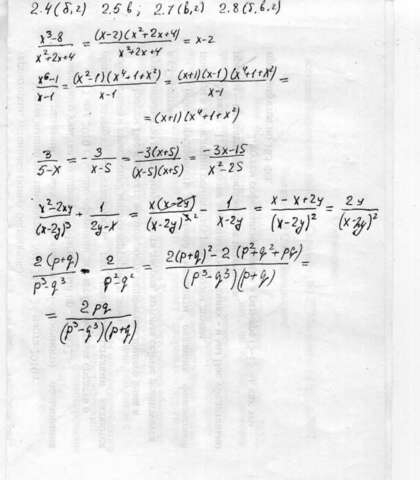 2.4(б,г) 2.5 в; 2.7(в,г) 2.8(б,в,г)
(x³-8)/(x²+2x+4) = (x-2)(x²+2x+4)/(x²+2x+4) = x-2
(x⁶-1)/(x-1) = (x²-1)(x⁴+1+x²)/(x-1) = (x+1)(x-1)(x⁴+1+x²)/(x-1) =
= (x+1)(x⁴+1+x²)
3/(5-x) = -3/(x-5) = -3(x+5)/((x-5)(x+5)) = (-3x-15)/(x²-25)
(x²-2xy)/(x-2y)³ + 1/(2y-x) = x(x-2y)/(x-2y)³·² - 1/(x-2y) = (x-x+2y)/(x-2y)² = 2y/(x-2y)²
2(p+q)/(p³-q³) - 2/(p²-q²) = (2(p+q)²-2(p²+q²+pq))/((p³-q³)(p+q)) =
= 2pq/((p³-q³)(p+q))